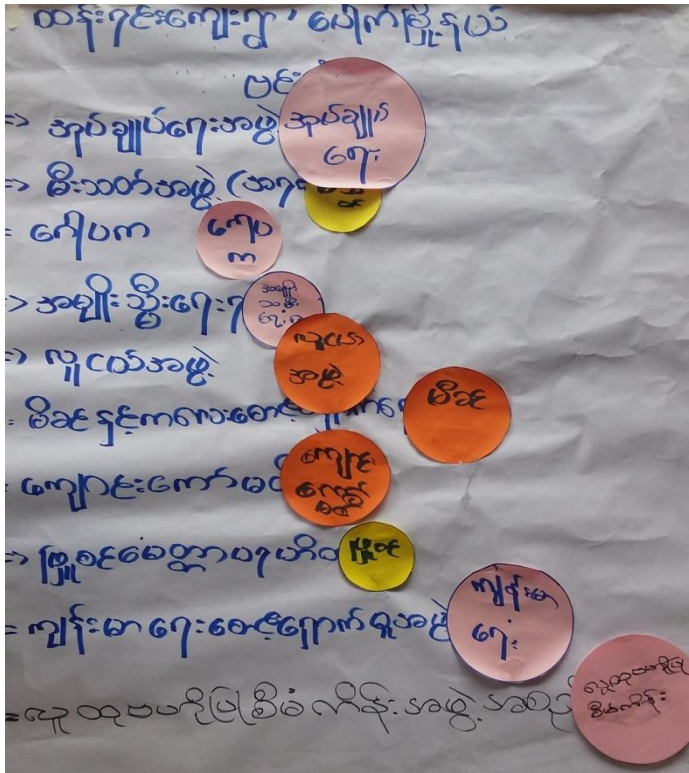 ထန်းငင်းကျေးရွာ ၊ ပေါက်မြို့နယ်
⇒ အုပ်ချုပ်ရေးအဖွဲ့ အုပ်ချုပ်ရေး
⇒ မီးသတ်အဖွဲ့
= ဂေါပက ဂေါပက
⇒ အမျိုးသ္မီးရေးရ အမျိုးသမီးရေးရာ
⇒ လူငယ်အဖွဲ့ လူငယ်အဖွဲ့
= မိခင်နှင့်ကလေးစောင့် မိခင်
= ကျောင်းကော်မတီ ကျောင်းကော်မတီ
⇒ ဖြူစင်မေတ္တာပရဟိတ ဖြူစင်
= ကျန်းမာရေးစောင့်ရှောက်မှုအဖွဲ့ ကျန်းမာရေး
= လူထုဗဟိုပြုစီမံကိန်းအဖွဲ့အစည်း လူထုဗဟိုပြုစီမံကိန်း